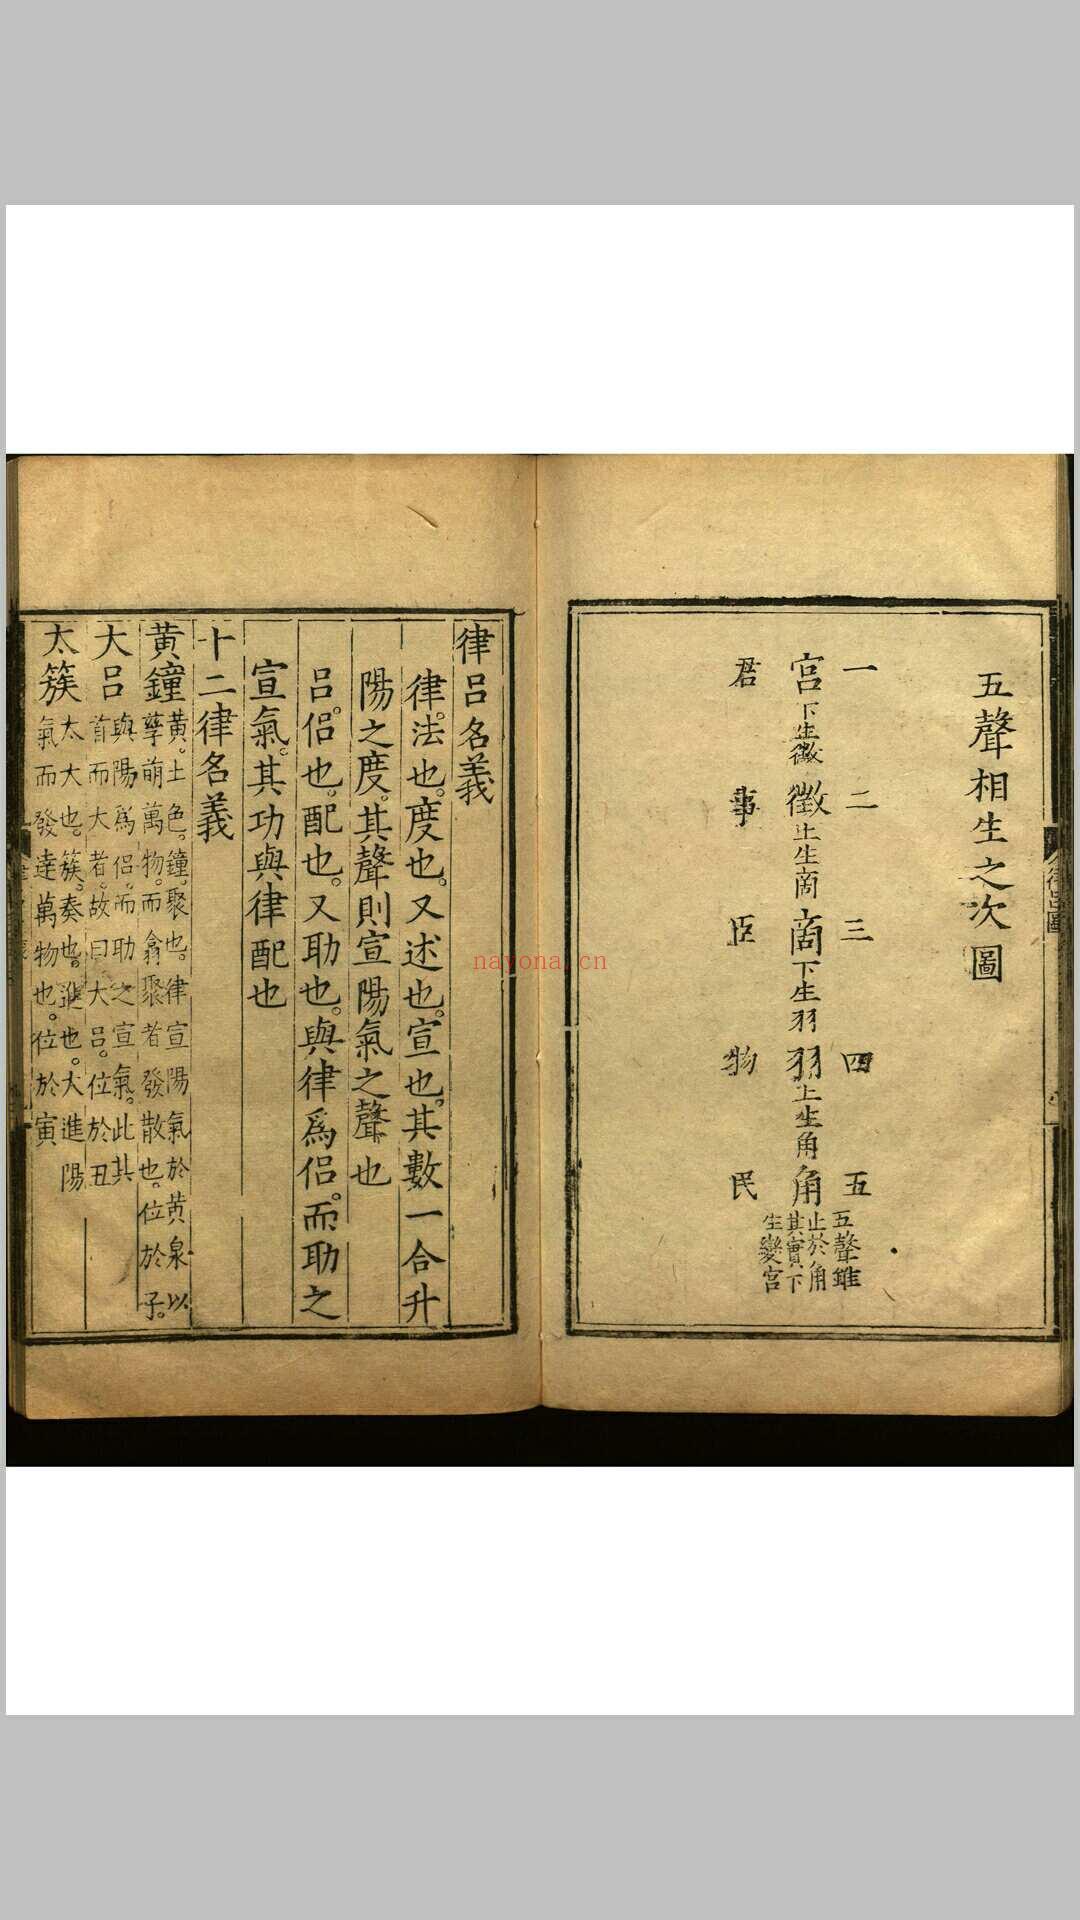 五聲相生之次圖
一 二 三 四 五
宮下生徵 徵上生商 商下生羽 羽上生角 角五聲雖
止於角
其實下
生變宮
君 事 臣 物 民
律呂名義
律。法也。度也。又述也。宣也。其數一合升
陽之度。其聲則宣陽氣之聲也
呂。侶也。配也。又助也。與律爲侶。而助之
宣氣。其功與律配也
十二律名義
黃鐘黃。土色。鐘。聚也。律宣陽氣於黃泉以
孳萌萬物。而翕聚者發散也。位於子。
大呂與陽爲侶。而助之宣氣。此其
首而大者。故曰大呂。位於丑
太簇太大也。簇。奏也。進也。大進陽
氣而發達萬物也。位於寅
nayona.cn